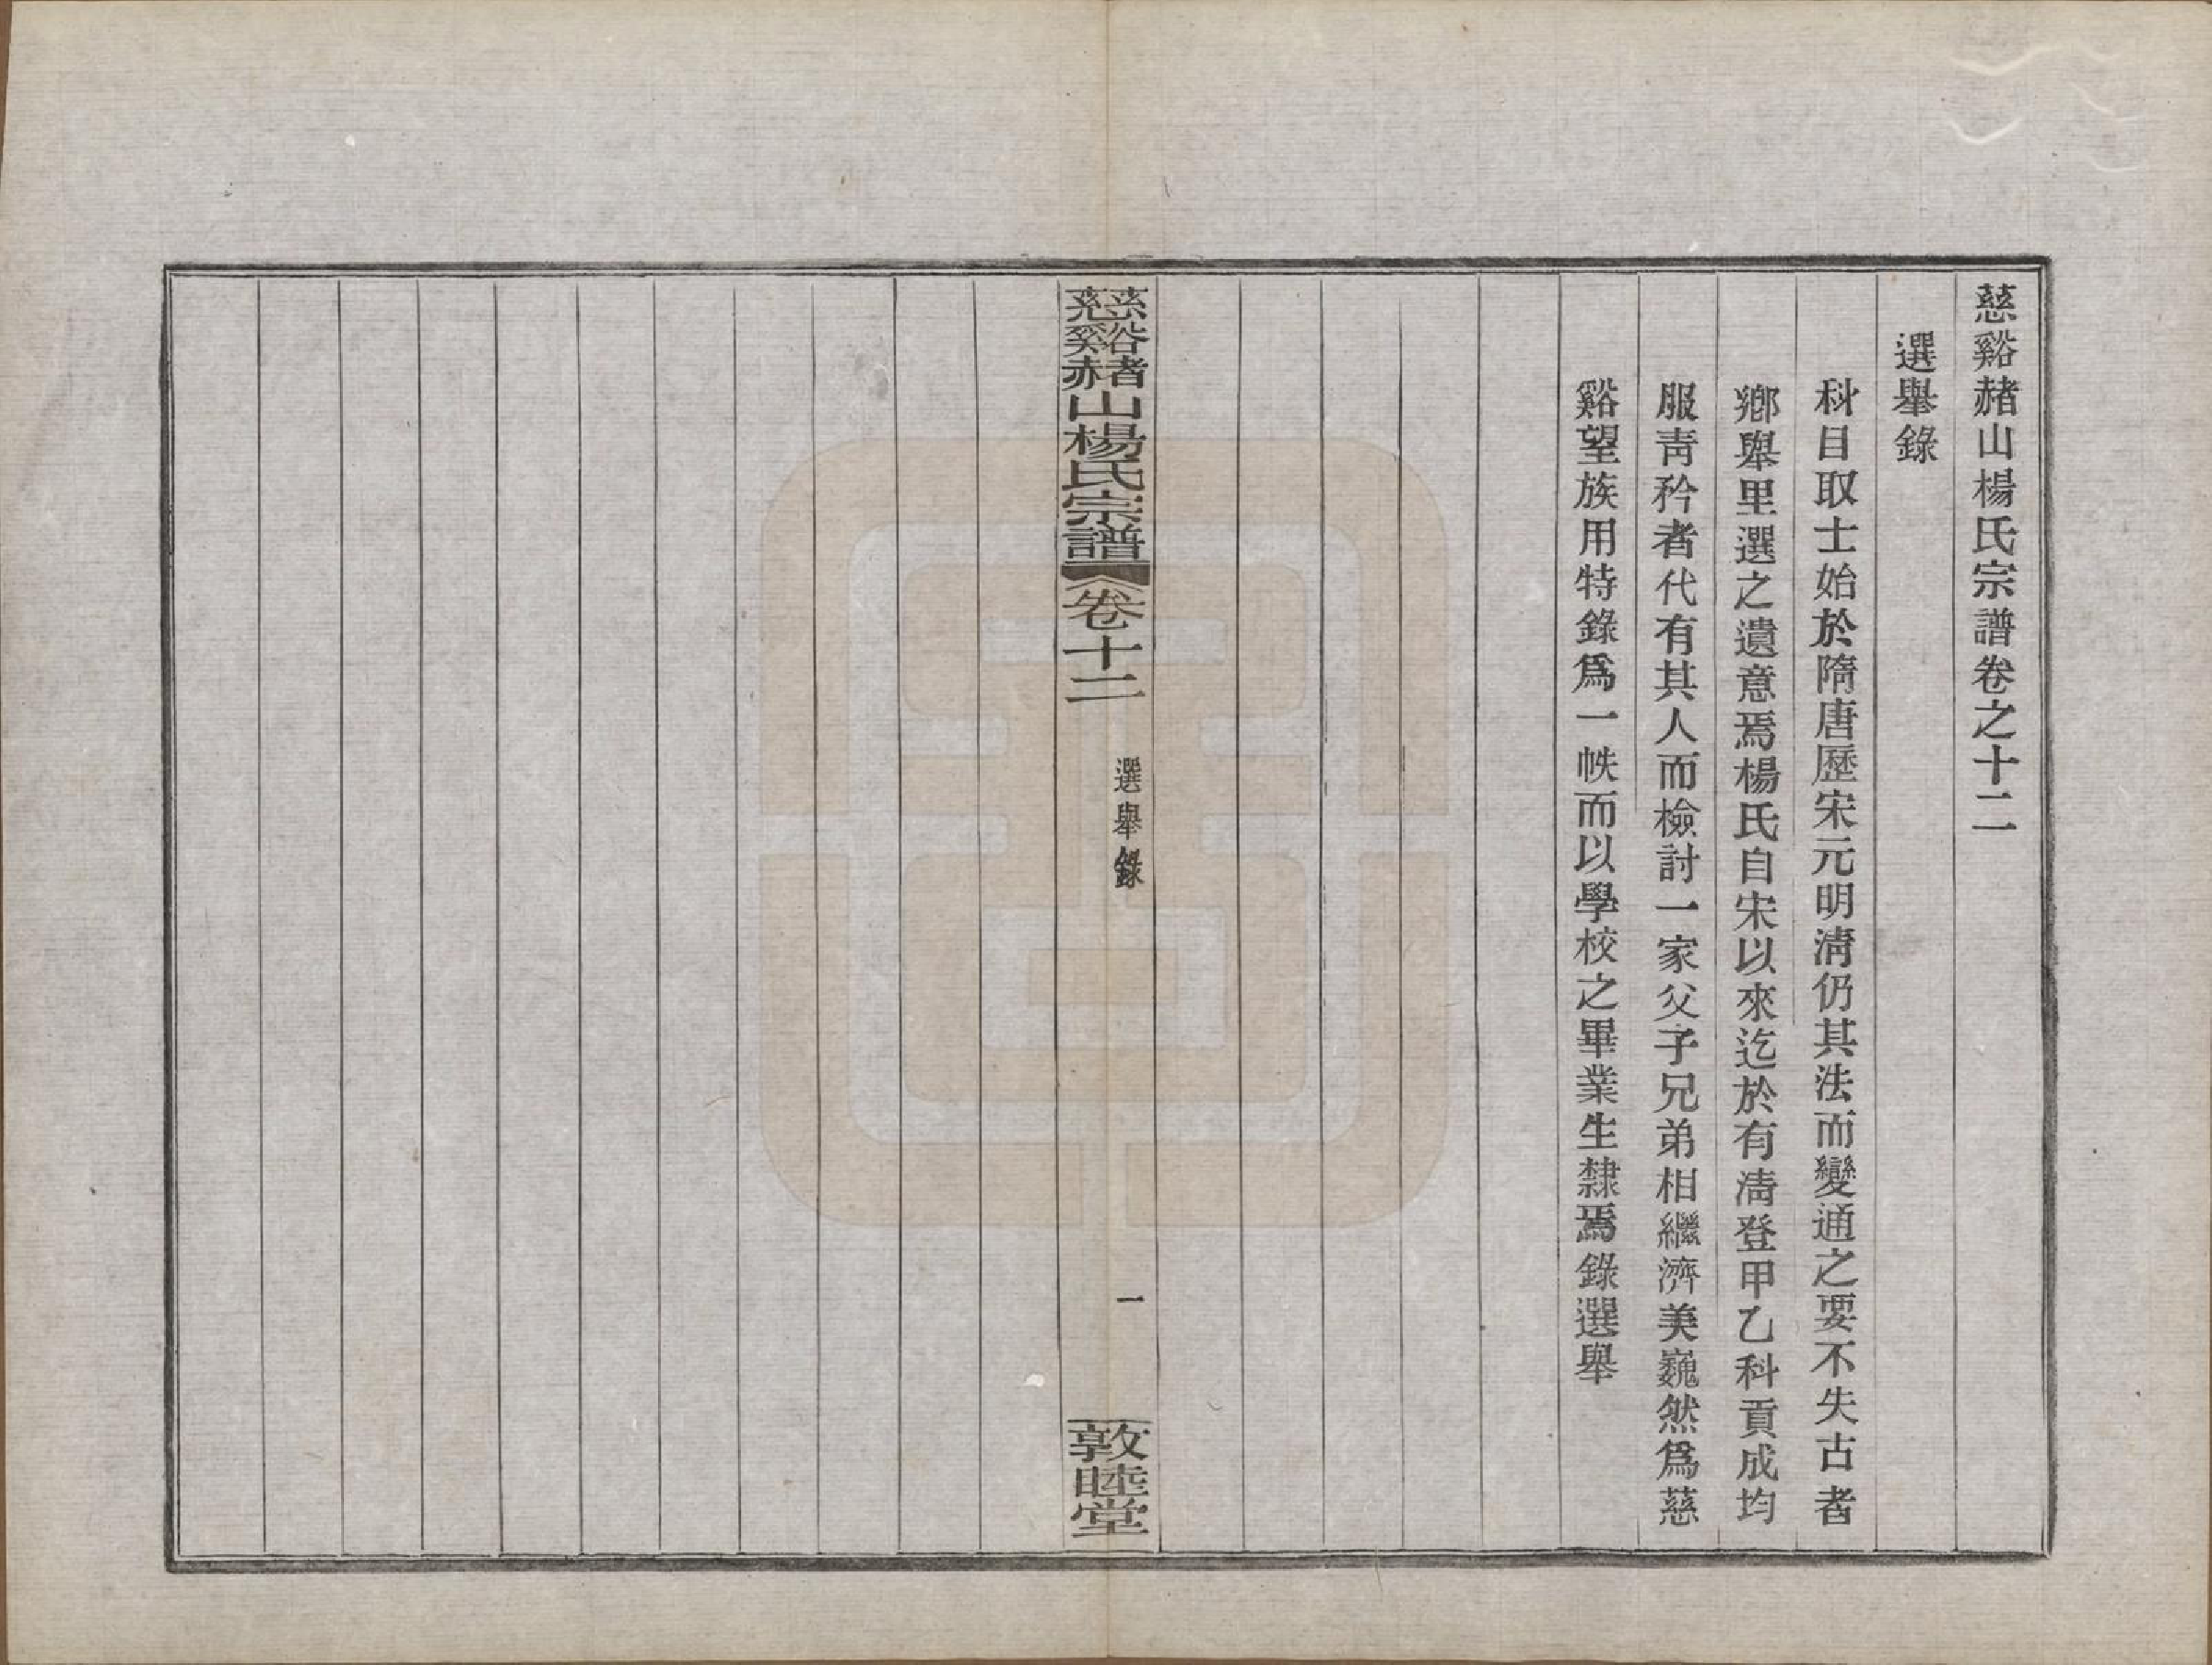 慈谿赭山楊氏宗譜卷之十二
選舉錄
科目取士始於隋唐歷宋元明淸仍其法而變通之要不失古者
鄕舉里選之遺意焉楊氏自宋以來迄於有淸登甲乙科貢成均
服靑矜者代有其人而檢討一家父子兄弟相繼濟美巍然爲慈
谿望族用特錄爲一帙而以學校之畢業生隸焉錄選舉
慈谿赭山楊氏宗譜 卷十二 選舉錄 一 敦睦堂